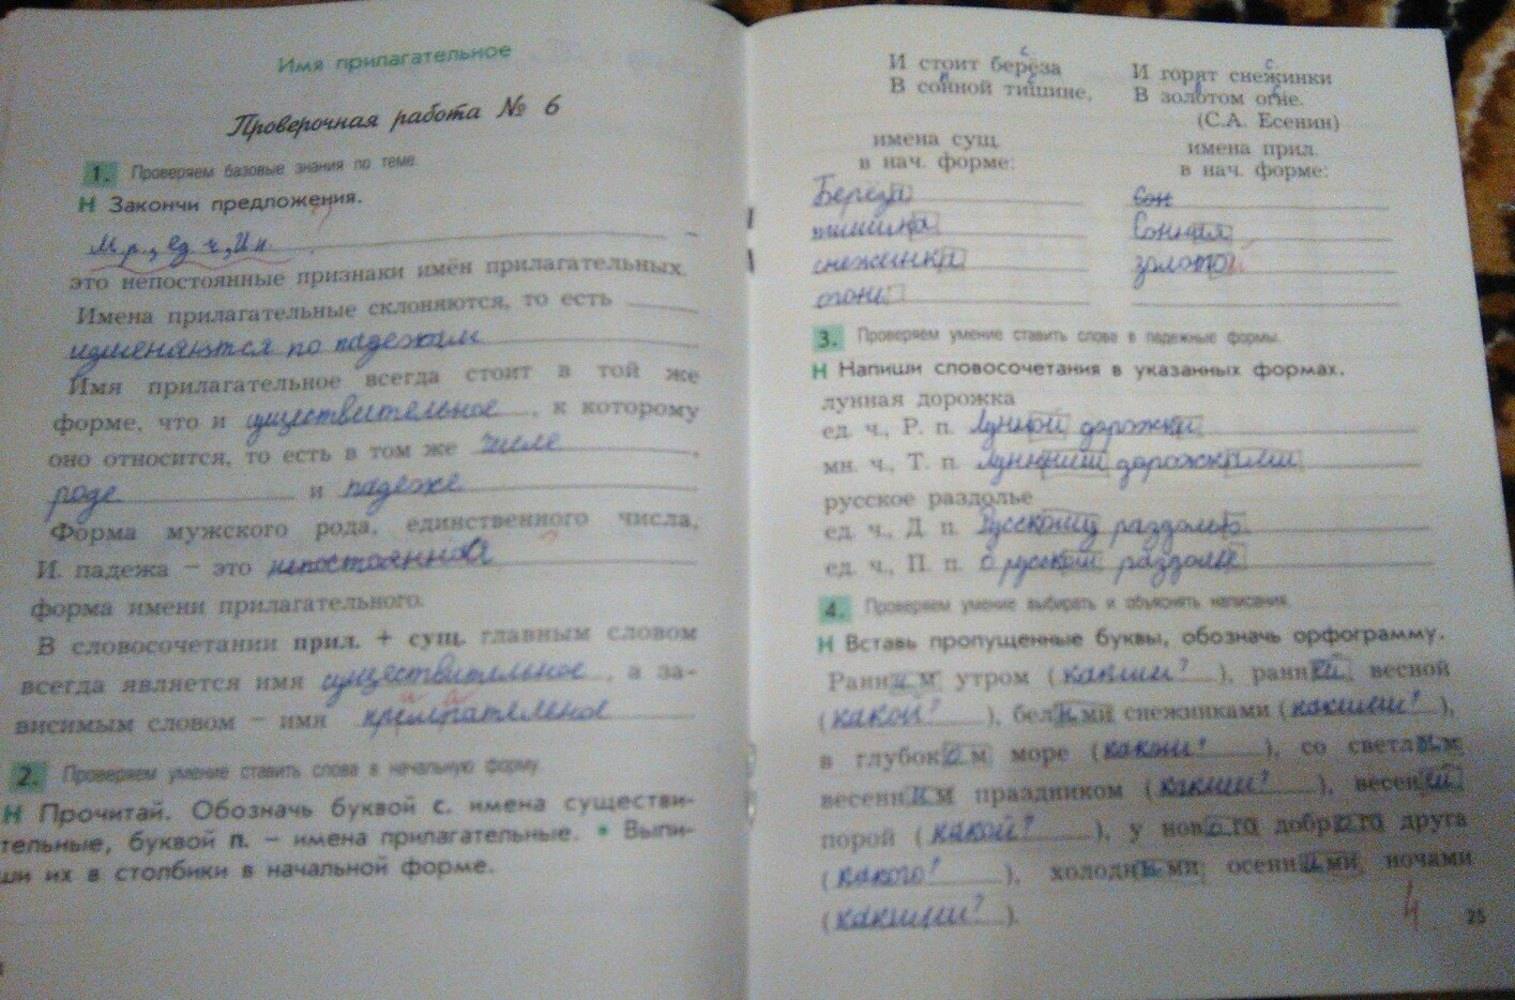 Имя прилагательное
Проверочная работа № 6
1. Проверяем базовые знания по теме.
Н Закончи предложения.
М.р., ед.ч., И.п. –
это непостоянные признаки имён прилагательных.
Имена прилагательные склоняются, то есть
изменяются по падежам
Имя прилагательное всегда стоит в той же
форме, что и существительное, к которому
оно относится, то есть в том же числе,
роде и падеже
Форма мужского рода, единственного числа,
И. падежа – это непостоянная
форма имени прилагательного.
В словосочетании прил. + сущ. главным словом
всегда является имя существительное, а за-
висимым словом – имя
2. Проверяем умение ставить слова в начальную форму.
Н Прочитай. Обозначь буквой с. имена существи-
тельные, буквой п. – имена прилагательные. • Выпи-
ши их в столбики в начальной форме.
И стоит берёза
В сонной тишине,
И горят снежинки
В золотом огне.
(С.А. Есенин)
имена сущ.
в нач. форме:
Берёза
тишина
снежинка
огонь
имена прил.
в нач. форме:
Сон
Сонная
золотой
3. Проверяем умение ставить слова в падежные формы.
Н Напиши словосочетания в указанных формах.
лунная дорожка
ед. ч., Р. п. Лунной дорожки
мн. ч., Т. п. лунными дорожками
русское раздолье
ед. ч., Д. п. Русскому раздолью
ед. ч., П. п. О русском раздолье
4. Проверяем умение выбирать и объяснять написания.
Н Вставь пропущенные буквы, обозначь орфограмму.
Ранним утром (каким?), ранней весной
(какой?), белыми снежинками (какими?),
в глубоком море (каком?), со светлым
весенним праздником (каким?), весенней
порой (какой?), у нового доброго друга
(какого?), холодными осенними ночами
(какими?).
4
25